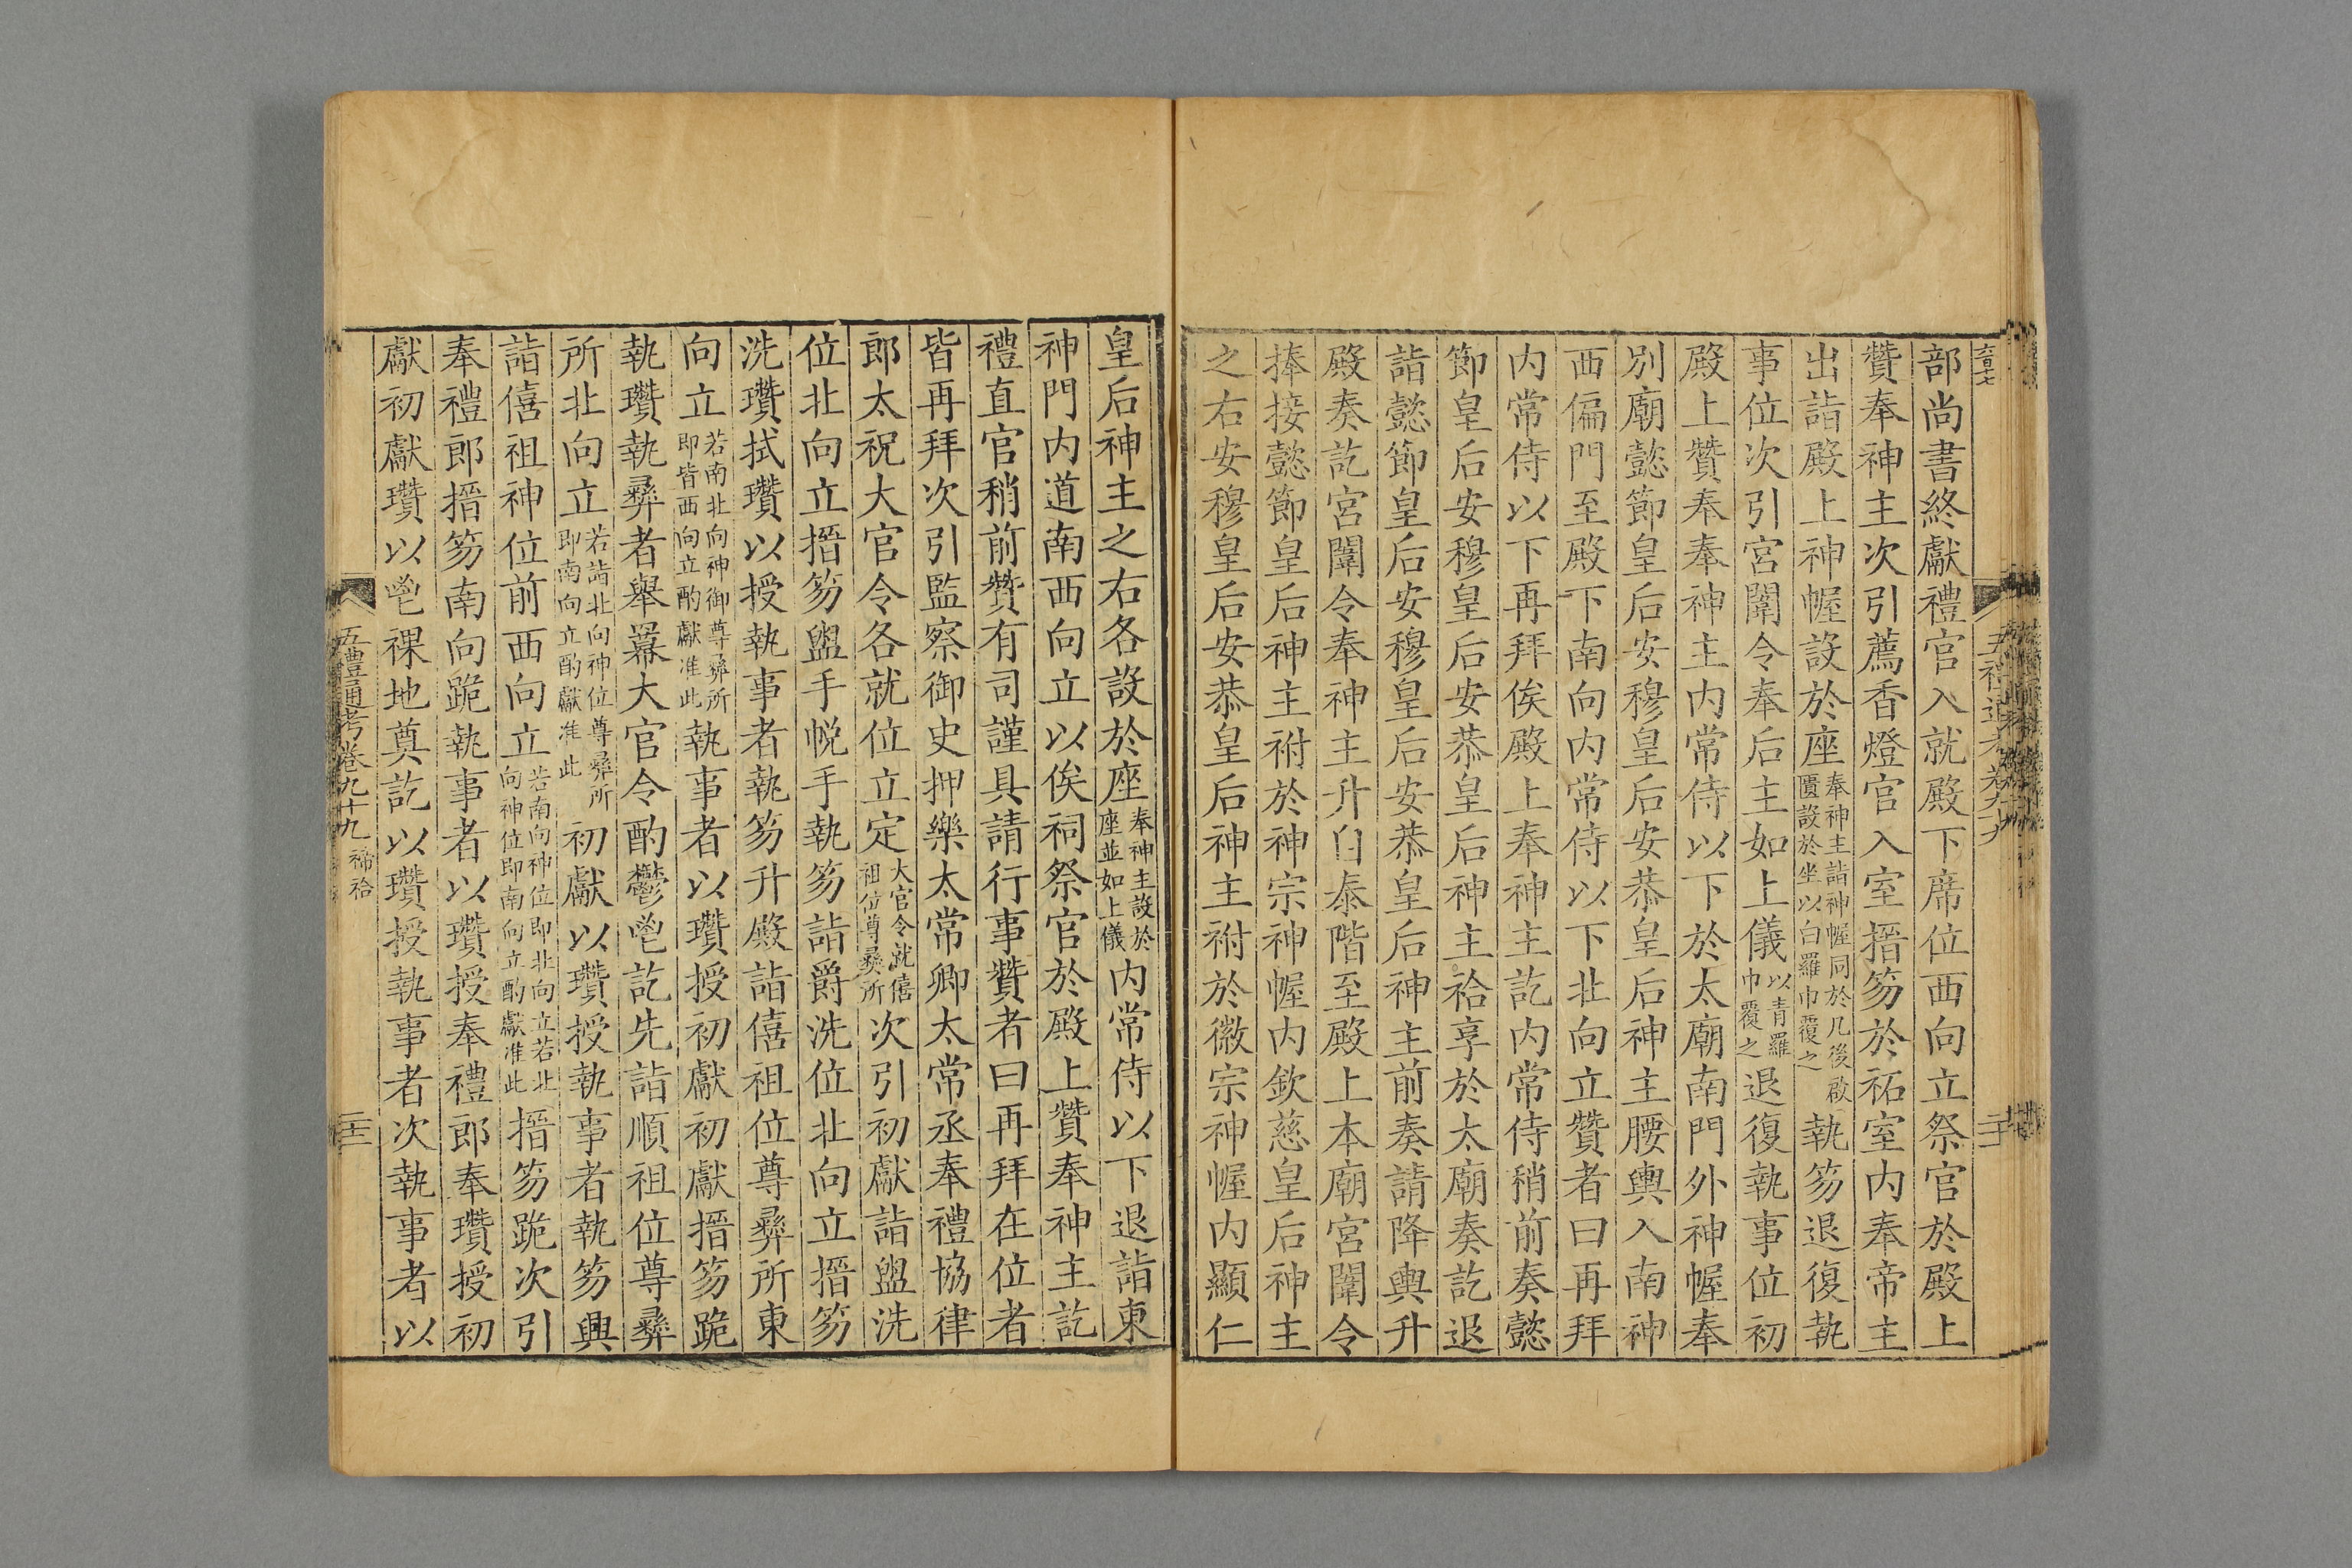 部尚書終獻禮官入就殿下席位西向立祭官於殿上
贊奉神主次引薦香燈官入室搢笏於祏室内奉帝主
出詣殿上神幄設於座奉神主詣神幄同於几後啟匱設於坐以白羅巾覆之執笏退復執
事位次引宮闈令奉后主如上儀以青羅巾覆之退復執事位初
殿上贊奉奉神主内常侍以下於太廟南門外神幄奉
別廟懿節皇后安穆皇后安恭皇后神主腰輿入南神
西偏門至殿下南向内常侍以下北向立贊者曰再拜
内常侍以下再拜俟殿上奉神主訖内常侍稍前奏懿
節皇后安穆皇后安恭皇后神主祫享於太廟奏訖退
詣懿節皇后安穆皇后安恭皇后神主前奏請降輿升
殿奏訖宮闈令奉神主升自泰階至殿上本廟宮闈令
捧接懿節皇后神主祔於神宗神幄内欽慈皇后神主
之右安穆皇后安恭皇后神主祔於徽宗神幄内顯仁
皇后神主之右各設於座奉神主設於座並如上儀内常侍以下退詣東
神門内道南西向立以俟祠祭官於殿上贊奉神主訖
禮直官稍前贊有司謹具請行事贊者曰再拜在位者
皆再拜次引監察御史押樂太常卿太常丞奉禮協律
郎太祝大官令各就位立定大官令就僖祖位尊彝所次引初獻詣盥洗
位北向立搢笏盥手帨手執笏詣爵洗位北向立搢笏
洗瓚拭瓚以授執事者執笏升殿詣僖祖位尊彝所東
向立若南北向神御尊彝所即皆西向立酌獻准此執事者以瓚授初獻初獻搢笏跪
執瓚執彝者舉羃大官令酌鬱鬯訖先詣順祖位尊彝
所北向立若詣北向神位尊彝所即南向立酌獻准此初獻以瓚授執事者執笏興
詣僖祖神位前西向立若南向神位即北向立若北向神位即南向立酌獻准此搢笏跪次引
奉禮郎搢笏南向跪執事者以瓚授奉禮郎奉瓚授初
獻初獻瓚以鬯祼地奠訖以瓚授執事者次執事者以
五禮通考卷九十九 禘祫 二十一